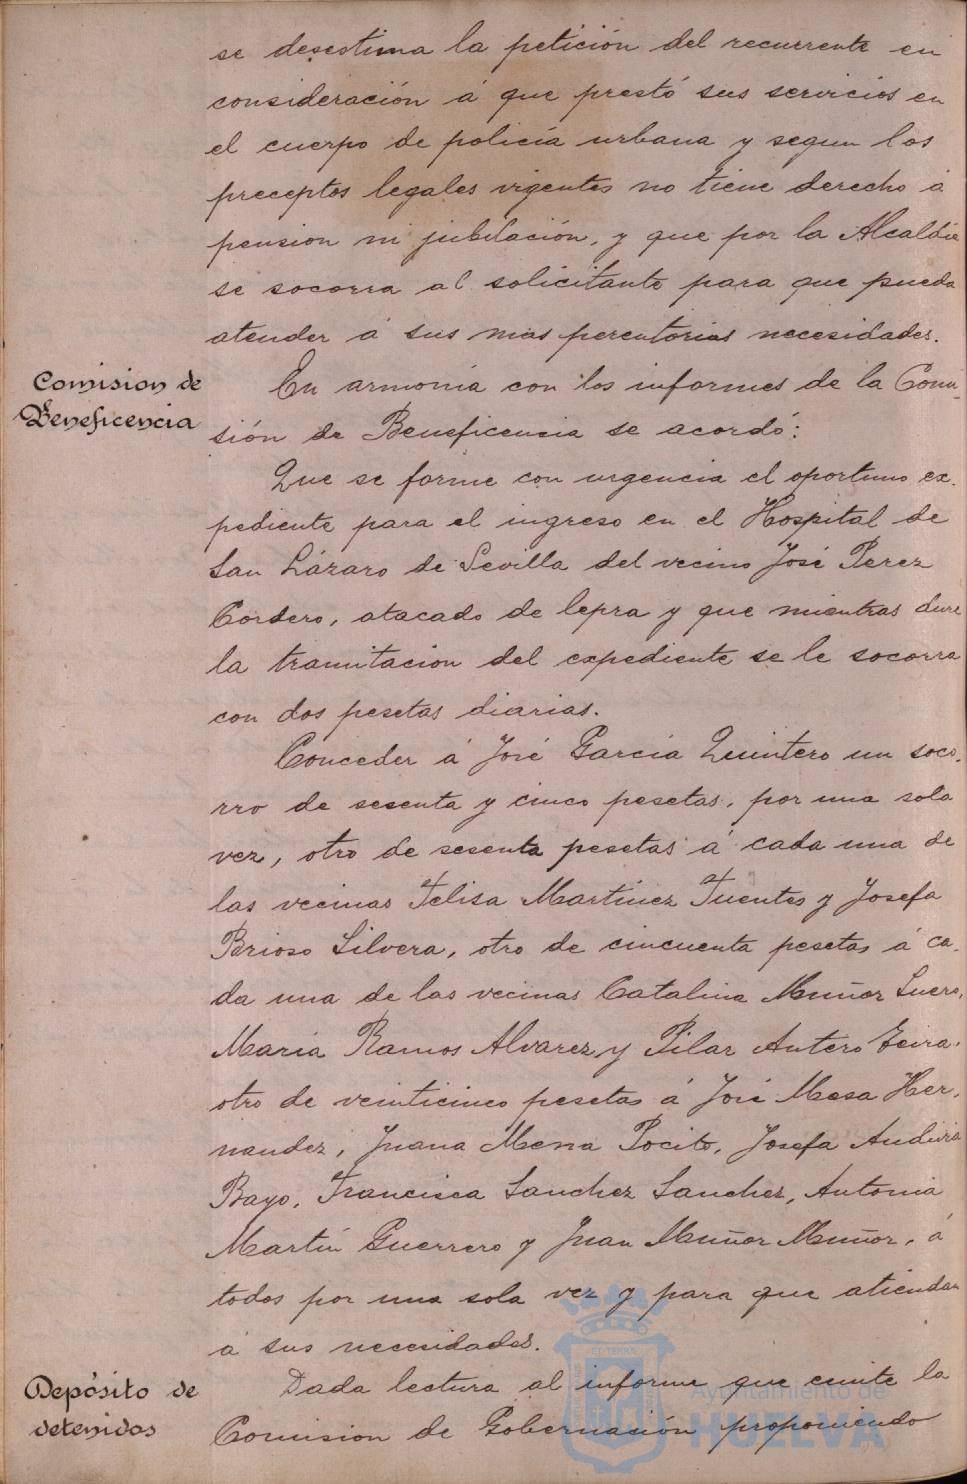 se desestima la petición del recurrente en
consideración á que prestó sus servicios en
el cuerpo de policía urbana y segun los
preceptos legales vigentes no tiene derecho á
pension ni jubilación, y que por la Alcaldía
se socorra al solicitante para que pueda
atender á sus mas perentorias necesidades.
Comision de
Beneficencia
En armonía con los informes de la Comi-
sión de Beneficencia se acordó:
Que se forme con urgencia el oportuno ex-
pediente para el ingreso en el Hospital de
San Lázaro de Sevilla del vecino José Perez
Cordero, atacado de lepra y que mientras dure
la tramitacion del expediente se le socorra
con dos pesetas diarias.
Conceder á José García Quintero un soco-
rro de sesenta y cinco pesetas, por una sola
vez, otro de sesenta pesetas á cada una de
las vecinas Felisa Martínez Fuentes y Josefa
Brioso Silvera, otro de cincuenta pesetas á ca-
da una de las vecinas Catalina Muñoz Suero,
María Ramos Alvarez y Pilar Antero
otro de veinticinco pesetas á José Mesa Her-
nandez, Juana Mena Pocito, Josefa
Bayo, Francisca Sanchez Sanchez, Antonia
Martín Guerrero y Juan Muñoz Muñoz, á
todos por una sola vez y para que atiendan
á sus necesidades.
Depósito de
detenidos
Dada lectura al informe que emite la
Comision de Gobernasión proponiendo
Ayuntamiento de
HUELVA